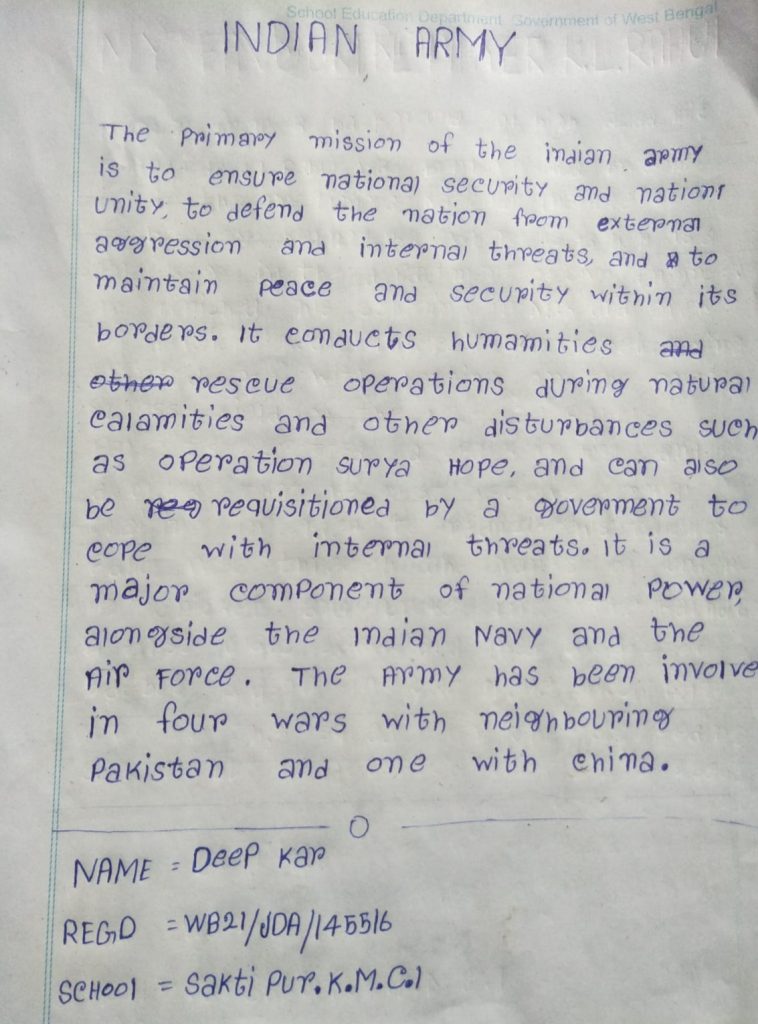 School Education Department, Government of West Bengal
INDIAN ARMY
The Primary mission of the indian army
is to ensure national security and nation
unity, to defend the nation from external
aggression and internal threats, and to
maintain peace and security within its
borders. It conducts humamities and
other rescue operations during natural
calamities and other disturbances such
as operation surya Hope, and can also
be req requisitioned by a goverment to
cope with internal threats. It is a
major component of national power,
alongside the indian Navy and the
Air Force. The Army has been involve
in four wars with neighbouring
Pakistan and one with china.
NAME = Deep Kar
REGD = WB21/JDA/145516
SCHOOl = Sakti Pur. K.M.C.I